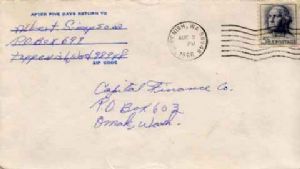 AFTER FIVE DAYS RETURN TO
Albert Simpson
P.O Box 699
Toppenish, Wash 98948
ZIP CODE
TOPPENISH, WA
AUG
PM
1966
U.S. POSTAGE
Capital Finance Co.
P.O Box 603
Omak, Wash.